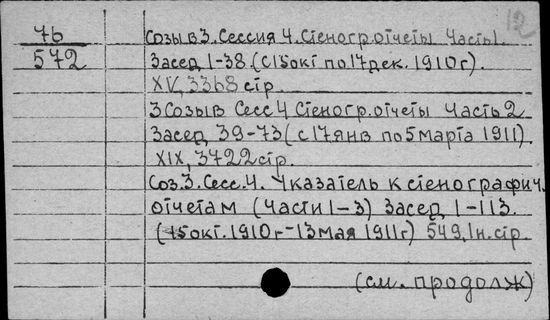 12
76
572
Созыв 3. Сессия 4. Стеногр. отчеты Часть 1.
Засед 1-38 (с 15 окт по 17 дек. 1910 г).
XV, 3368 стр.
3 Созыв Сесс 4 Стеногр. отчеты Часть 2
Засед 39-73 (с 17 янв по 5 марта 1911).
XIX, 3722 стр.
Соз. 3. Сесс. 4. Указатель к стенографич.
отчетам (Части 1-3) Засед 1-113.
(15 окт. 1910 г - 13 мая 1911 г) 549, 1 н. стр.
(см. продолж)